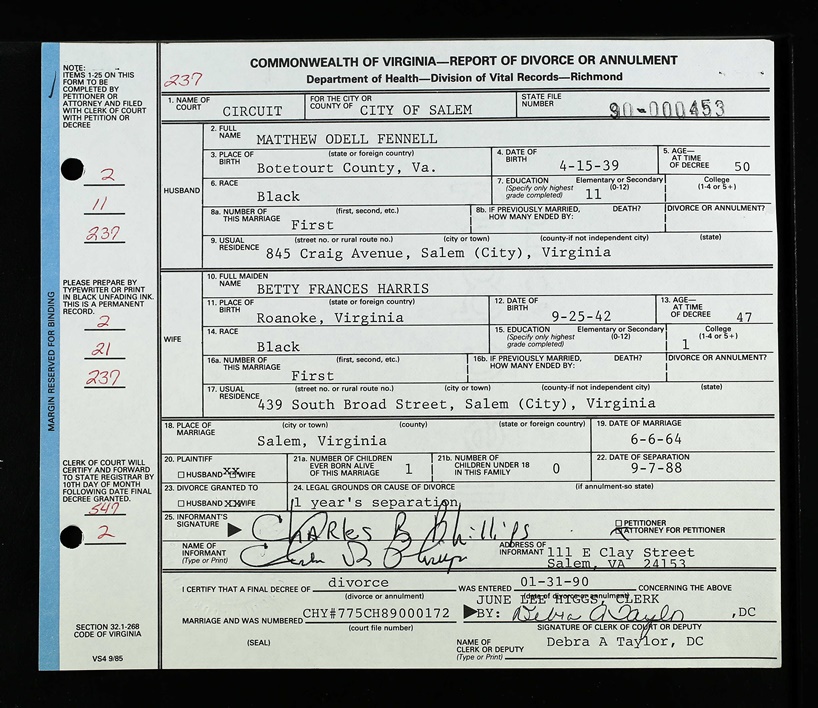 COMMONWEALTH OF VIRGINIA—REPORT OF DIVORCE OR ANNULMENT
Department of Health—Division of Vital Records—Richmond
237
NOTE:
ITEMS 1-25 ON THIS
FORM TO BE
COMPLETED BY
PETITIONER OR
ATTORNEY AND FILED
WITH CLERK OF COURT
WITH PETITION OR
DECREE
2
11
237
PLEASE PREPARE BY
TYPEWRITER OR PRINT
IN BLACK UNFADING INK.
THIS IS A PERMANENT
RECORD.
2
21
237
MARGIN RESERVED FOR BINDING
CLERK OF COURT WILL
CERTIFY AND FORWARD
TO STATE REGISTRAR BY
10TH DAY OF MONTH
FOLLOWING DATE FINAL
DECREE GRANTED.
547
2
SECTION 32.1-268
CODE OF VIRGINIA
VS4 9/85
1. NAME OF COURT CIRCUIT FOR THE CITY OR COUNTY OF CITY OF SALEM STATE FILE NUMBER 90-000453
HUSBAND
2. FULL NAME MATTHEW ODELL FENNELL
3. PLACE OF BIRTH (state or foreign country) Botetourt County, Va. 4. DATE OF BIRTH 4-15-39 5. AGE—AT TIME OF DECREE 50
6. RACE Black 7. EDUCATION (Specify only highest grade completed) Elementary or Secondary (0-12) 11 College (1-4 or 5+)
8a. NUMBER OF THIS MARRIAGE (first, second, etc.) First 8b. IF PREVIOUSLY MARRIED, HOW MANY ENDED BY: DEATH? DIVORCE OR ANNULMENT?
9. USUAL RESIDENCE (street no. or rural route no.) (city or town) (county-if not independent city) (state)
845 Craig Avenue, Salem (City), Virginia
WIFE
10. FULL MAIDEN NAME BETTY FRANCES HARRIS
11. PLACE OF BIRTH (state or foreign country) Roanoke, Virginia 12. DATE OF BIRTH 9-25-42 13. AGE—AT TIME OF DECREE 47
14. RACE Black 15. EDUCATION (Specify only highest grade completed) Elementary or Secondary (0-12) College (1-4 or 5+) 1
16a. NUMBER OF THIS MARRIAGE (first, second, etc.) First 16b. IF PREVIOUSLY MARRIED, HOW MANY ENDED BY: DEATH? DIVORCE OR ANNULMENT?
17. USUAL RESIDENCE (street no. or rural route no.) (city or town) (county-if not independent city) (state)
439 South Broad Street, Salem (City), Virginia
18. PLACE OF MARRIAGE (city or town) (county) (state or foreign country) Salem, Virginia 19. DATE OF MARRIAGE 6-6-64
20. PLAINTIFF HUSBAND XX WIFE 21a. NUMBER OF CHILDREN EVER BORN ALIVE OF THIS MARRIAGE 1 21b. NUMBER OF CHILDREN UNDER 18 IN THIS FAMILY 0 22. DATE OF SEPARATION 9-7-88
23. DIVORCE GRANTED TO HUSBAND XX WIFE 24. LEGAL GROUNDS OR CAUSE OF DIVORCE (if annulment-so state) 1 year's separation
25. INFORMANT'S SIGNATURE CHARLES B Phillips PETITIONER ATTORNEY FOR PETITIONER
NAME OF INFORMANT (Type or Print) ADDRESS OF INFORMANT 111 E Clay Street
Salem, VA 24153
I CERTIFY THAT A FINAL DECREE OF divorce (divorce or annulment) WAS ENTERED 01-31-90 (date of divorce or annulment) CONCERNING THE ABOVE
JUNE LEE HIGGS, CLERK
MARRIAGE AND WAS NUMBERED CHY#775CH89000172 (court file number) BY: Debra A Taylor ,DC
SIGNATURE OF CLERK OF COURT OR DEPUTY
(SEAL) NAME OF CLERK OR DEPUTY (Type or Print) Debra A Taylor, DC